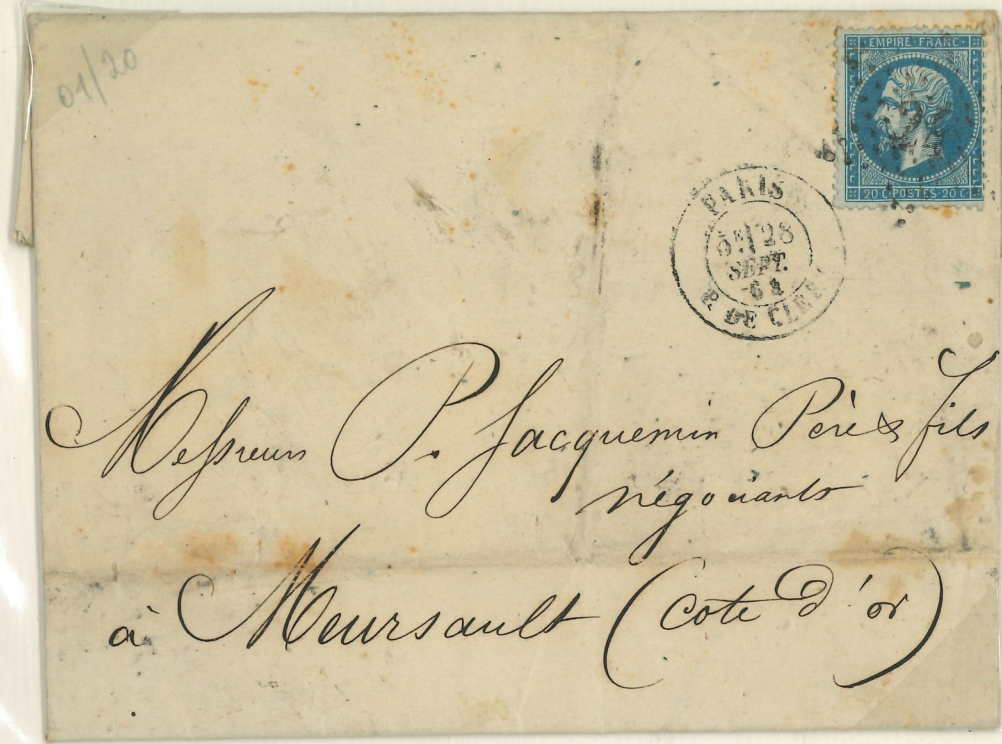 01/20
EMPIRE FRANC
20 C POSTES 20 C
PARIS
28
SEPT.
64
R. DE CLER
Messieurs P. Jacquemin Père & fils
négociants
à Meursault (Cote d'or)